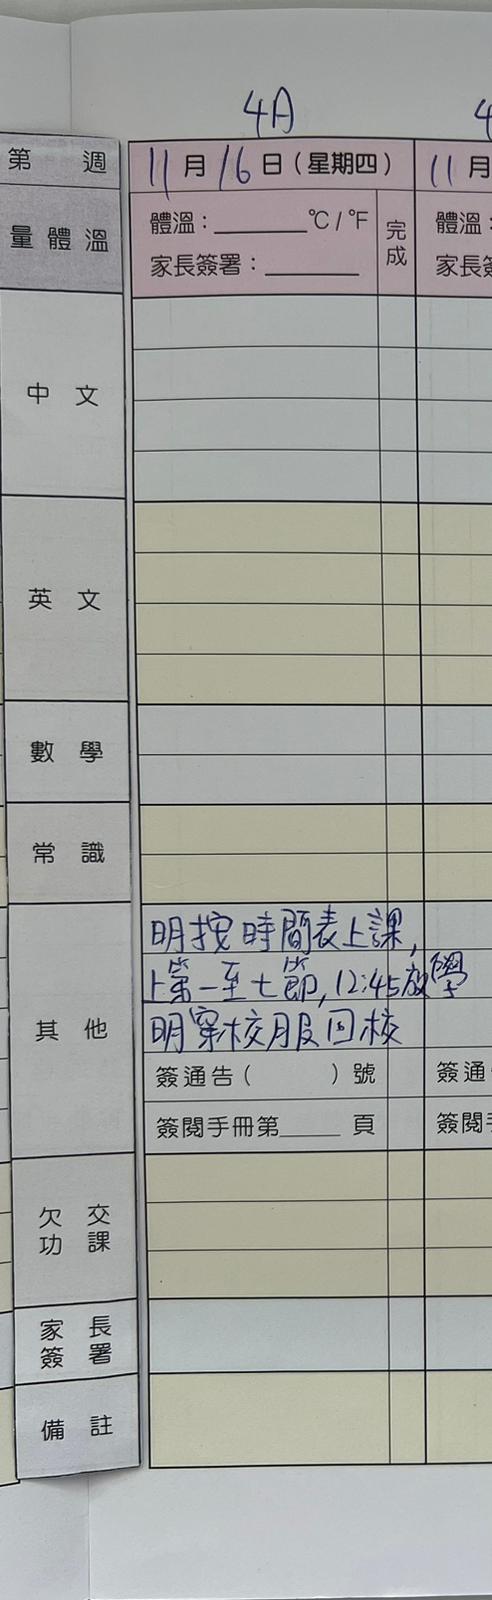 4A
4
第 週
11月16日(星期四)
11月
量體溫
體溫:______℃/℉
完成
體溫:
家長簽署:______
家長簽
中文
英文
數學
常識
其他
明按時間表上課,
上第一至七節,12:45放學
明穿校服回校
簽通告( )號
簽通
簽閱手冊第____頁
簽閱手
欠交
功課
家長
簽署
備註